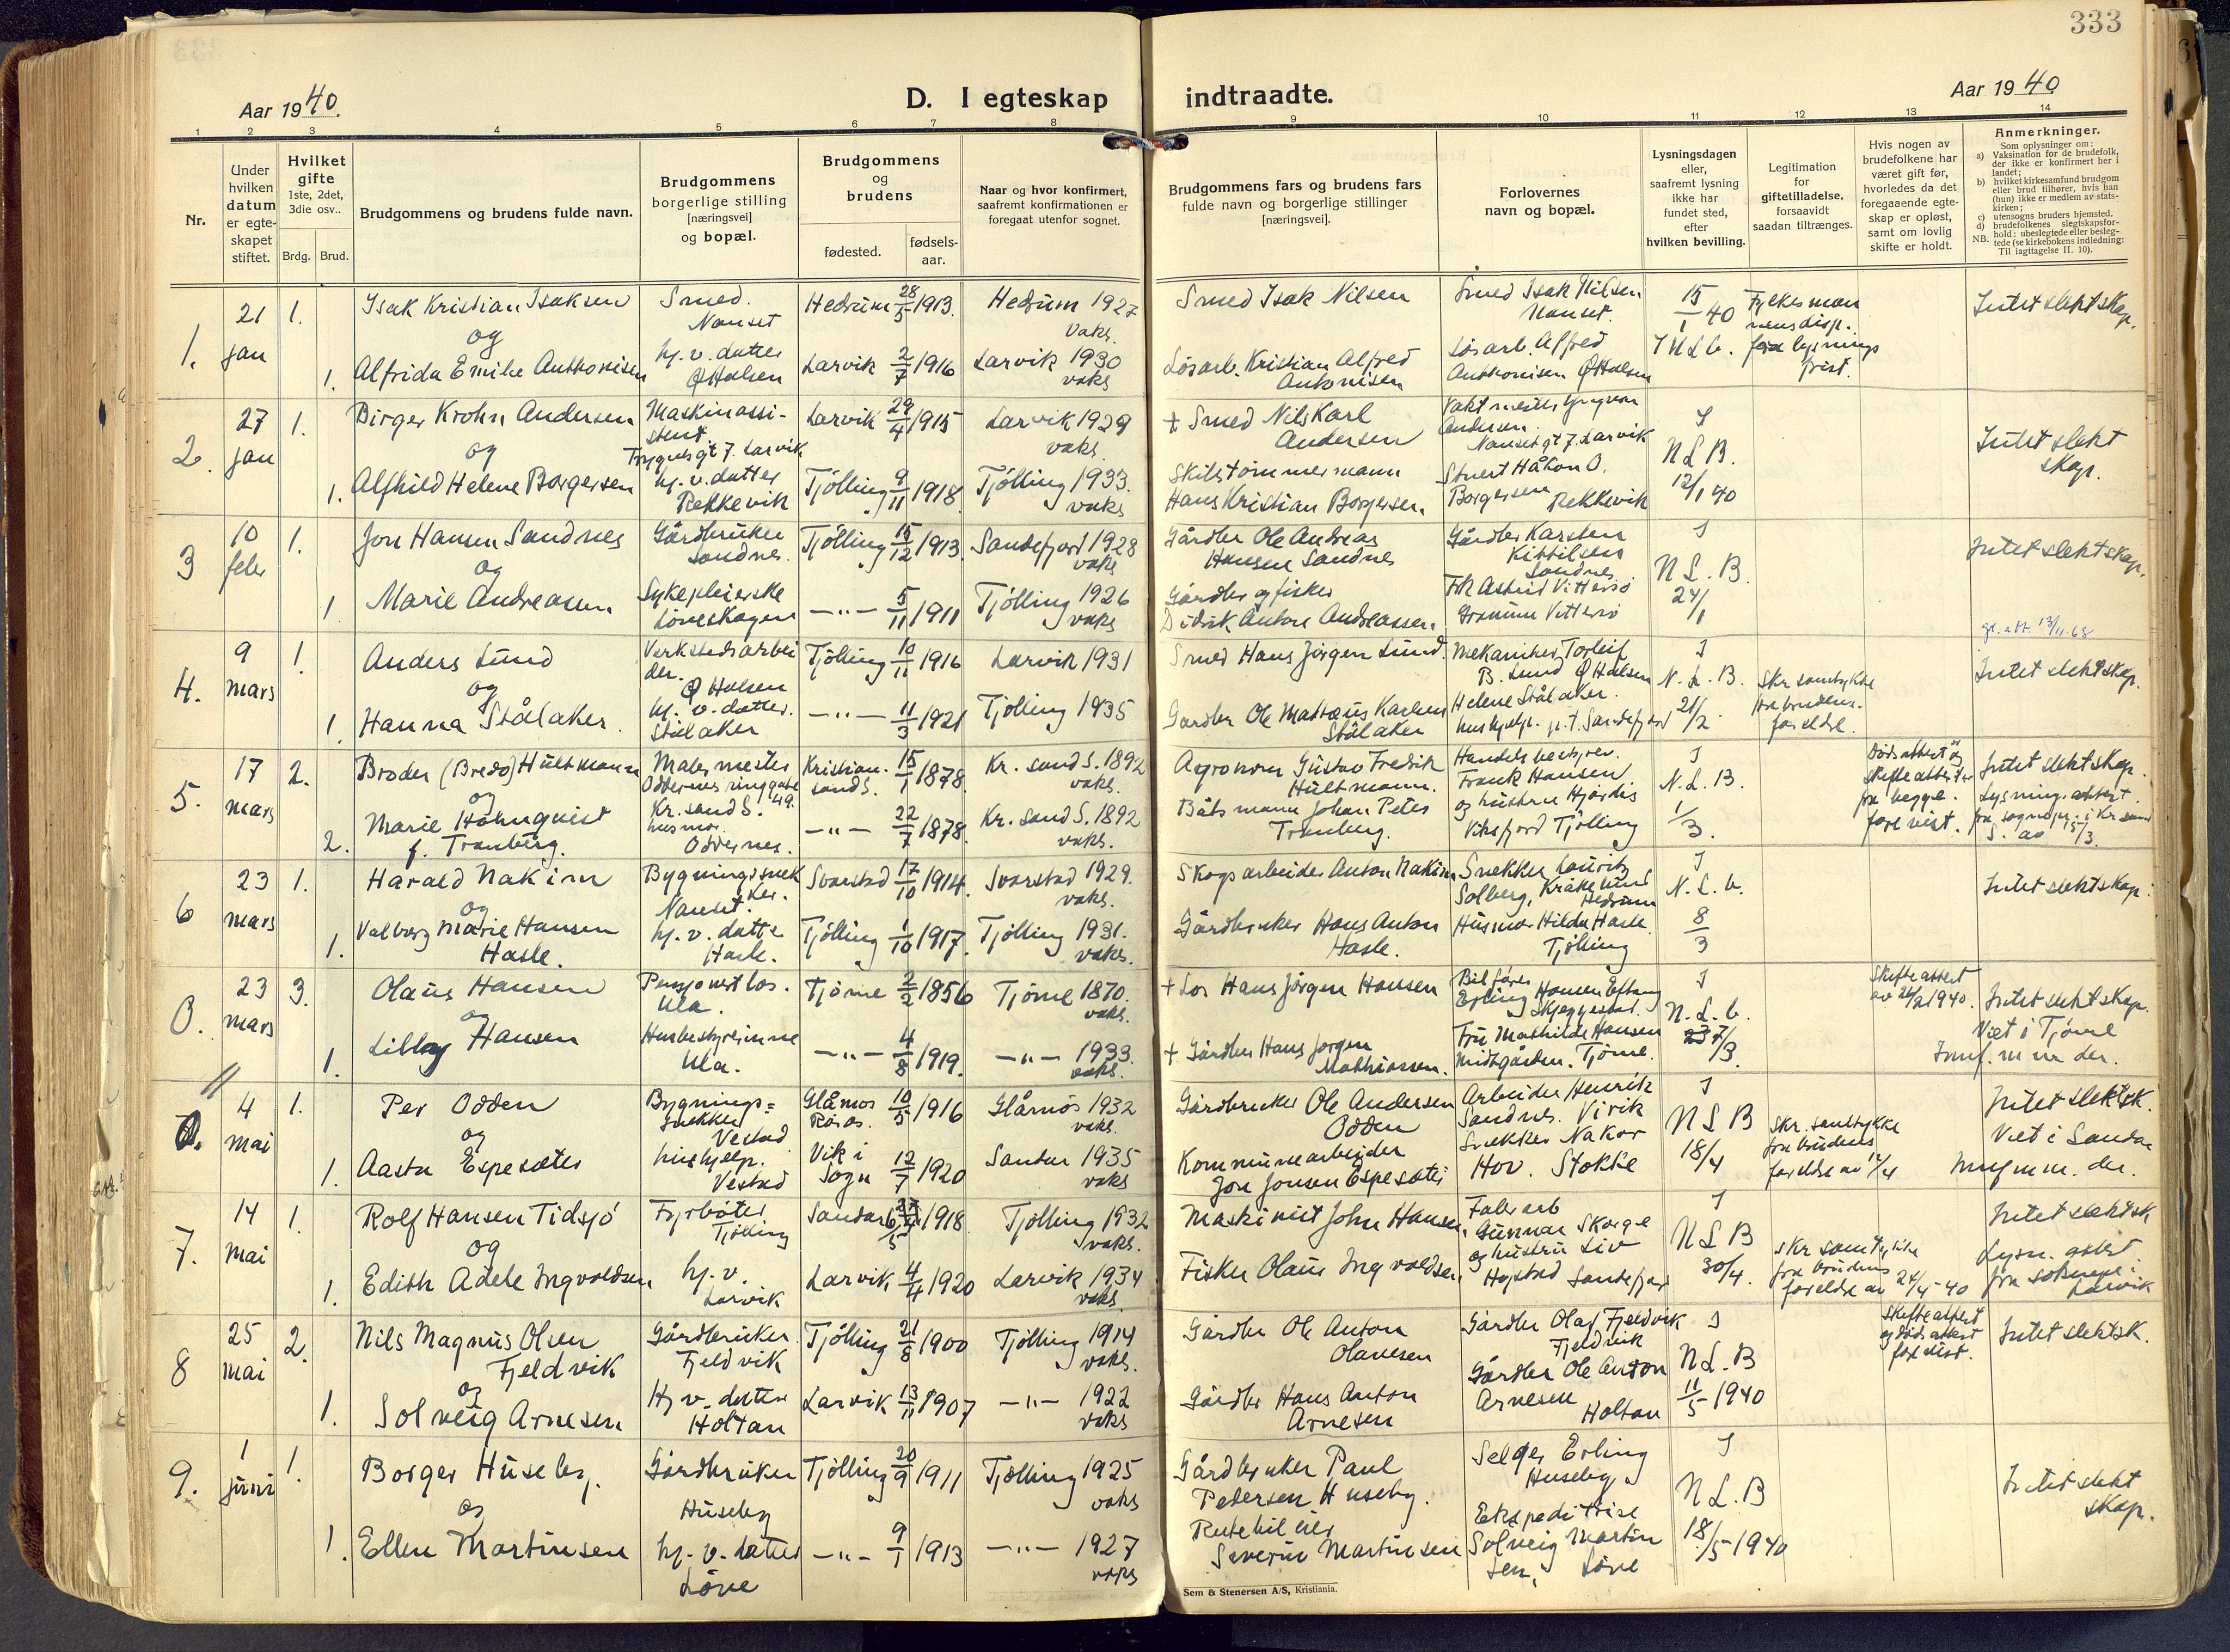 333
Aar 1940.
D. I egteskap indtraadte.
Aar 1940
1 2 3 4 5 6 7 8 9 10 11 12 13 14
Nr.
Under hvilken datum er egteskapet stiftet.
Hvilket gifte 1ste, 2det, 3die osv..
Brdg. Brud.
Brudgommens og brudens fulde navn.
Brudgommens borgerlige stilling [næringsvei] og bopæl.
Brudgommens og brudens
fødested.
fødsels-aar.
Naar og hvor konfirmert, saafremt konfirmationen er foregaat utenfor sognet.
Brudgommens fars og brudens fars fulde navn og borgerlige stillinger [næringsvei].
Forlovernes navn og bopæl.
Lysningsdagen eller, saafremt lysning ikke har fundet sted, efter hvilken bevilling.
Legitimation for giftetilladelse, forsaavidt saadan tiltrænges.
Hvis nogen av brudefolkene har været gift før, hvorledes da det foregaaende egteskap er opløst, samt om lovlig skifte er holdt.
Anmerkninger.
Som oplysninger om:
a) Vaksination for de brudefolk, der ikke er konfirmert her i landet;
b) hvilket kirkesamfund brudgom eller brud tilhører, hvis han (hun) ikke er medlem av statskirken;
c) utensogns bruders hjemsted.
d) brudefolkenes slegtskapsforhold: ubeslegtede eller beslegtede (se kirkebokens indledning:
NB. Til iagttagelse II. 10).
1. 21 jan 1. Isak Kristian Isaksen Smed. Nanset Hedrum 28/5 1913. Hedrum 1927 vaks. Smed Isak Nilsen Smed Isak Nilsen Nanset. 15/1 40 Fylkesmannens disp. Intet slektskap.
og
1. Alfrida Emilie Anthonisen hj. v. datter Ø Halsen Larvik 2/7 1916 Larvik 1930 vaks Løsarb. Kristian Alfred Antonisen Løsarb. Alfred Anthonisen Ø Halsen I N L b. lysnings frist.
2. 27 jan 1. Birger Krohn Andersen Maskinassistent Larvik 29/4 1915 Larvik 1929 vaks. + Smed Nils Karl Andersen Andersen Nansetgt 7. Larvik I N L B. Intet slektskap.
og
1. Alfhild Helene Borgersen hj. v. datter Rekkevik Tjølling 9/11 1918. Tjølling 1933. vaks Skibstømmermann Hans Kristian Borgersen. Stuert Håkon O. Borgersen Rekkevik 12/1 40
3 10 febr 1. Jon Hansen Sandnes Gårdbruker Sandnes. Tjølling 15/12 1913. Sandefjord 1928 vaks Gårdbr Ole Andreas Hansen Sandnes Gårdbr Karsten Kittilsen Sandnes I N L. B. Intet slektskap.
og
1 Marie Andreasen Sykepleierske Løveskogen —"— 5/11 1911 Tjølling 1926 vaks Gårdbr og fisker Didrik Anton Andreassen. Frk Astrid Vittersø Vittersø 24/1
4. 9 mars 1. Anders Lund Verkstedsarbeider. Ø Halsen Tjølling 10/11 1916 Larvik 1931 Smed Hans Jørgen Lund. Mekaniker Torleif B. Lund Ø Halsen I N. L. B. Skr samtykke fra brudens foreldre. 13/11-68 Intet slektskap.
og
1. Hanna Stålaker. hj. v. datter. Stålaker —"— 11/3 1921 Tjølling 1935 Gårdbr Ole Matteus Karlsen Stålaker Helene Stålaker. hushjelp. p.t. Sandefjord 21/2.
5. 17 mars 2. Broder (Bredo) Hultmann Malermester Oddernes ringgate 49. Kr. sand S. Kristiansand S. 15/1 1878. Kr. sand S. 1892 vaks. Agronom Gustav Fredrik Hultmann. Handelsbestyrer. Frank Hansen I N. L. B. Dødsattest og skifteattester fra begge. forevist. Intet slektskap. Lysningsattest. fra sognepr. i Kr. sand S. av 15/3.
og
2. Marie Holmquist f. Tranberg. husmor. Oddernes. —"— 22/7 1878. Kr. sand S. 1892 vaks. Båtsmann Johan Peter Tranberg. og hustru Hjørdis Viksfjord Tjølling 1/3.
6 23 mars 1. Harald Nakim Bygningssnekker. Nanset. Svarstad 17/10 1914. Svarstad 1929. vaks. Skogsarbeider Anton Nakim Snekker Lauritz Solberg, Hedrum I N. L. b. Intet slektskap.
og
1. Valborg Marie Hansen Hasle. hj. v. datter Hasle. Tjølling 1/10 1917. Tjølling 1931. vaks. Gårdbruker Hans Anton Hasle. Husmor Hilda Hasle Tjølling 8/3
0. 23 mars 3. Olaus Hansen Pensjonert los. Ula. Tjøme 2/2 1856 Tjøme 1870. vaks. + Los Hans Jørgen Hansen Bilfører Erling Hansen I N. L. b. Skifteattest av 26/2 1940. Intet slektskap. Viet i Tjøme
og
1. Libby Hansen Husbestyrerinne Ula. —"— 4/8 1919. —"— 1933. vaks. + Gårdbr Hans Jørgen Mathiassen. Fru Mathilde Hansen Midtgården. Tjøme. 7/3.
0. 4 mai 1. Per Odden Bygnings-snekker Vestad Glåmos Røros. 10/5 1916 Glåmos 1932 vaks. Gårdbruker Ole Andersen Odden Arbeider Henrik Sandnes. Virik I N L B Skr. samtykke fra brudens foreldre av 12/4 Intet slektsk. Viet i Sandar
og
1. Aasta Espeseter hushjelp. Vestad Vik i Sogn 12/7 1920 Sandar 1935 vaks Kommunearbeider Jon Jonsen Espeseter Snekker Hov. Stokke 18/4
7. 14 mai 1. Rolf Hansen Tidsjø Fyrbøter Tjølling Sandar 1918. Tjølling 1932 vaks. Maskinist John Hansen. Gunnar Skorge I N L B Skr samtykke fra brudens foreldre av 24/4 - 40 Intet slektsk Lysn. attest fra sokneprest i Larvik
og
1. Edith Adele Ingvaldsen hj. v. Larvik Larvik 4/4 1920 Larvik 1934 vaks. Fisker Olaus Ingvaldsen. og hustru Liv Sandefjord 30/4.
8 25 mai 2. Nils Magnus Olsen Fjeldvik Gårdbruker Fjeldvik Tjølling 21/8 1900 Tjølling 1914 vaks. Gårdbr Ole Anton Olavesen Gårdbr Olaf Fjeldvik Fjeldvik I N L. B Skifteattest og dødsattest forevist. Intet slektsk.
og
1. Solveig Arnesen Hj. v. datter Holtan Larvik 13/11 1907 —"— 1922 vaks Gårdbr Hans Anton Arnesen Gårdbr Ole Anton Arnesen Holtan 11/5 1940
9. 1 juni 1. Borger Huseby. Gårdbruker Huseby Tjølling 20/9 1911 Tjølling 1925 vaks Gårdbruker Paul Petersen Huseby. Selger Erling Huseby I N L. B Intet slektskap.
og
1. Ellen Martinsen hj. v. datter Løve —"— 9/1 1913 —"— 1927 vaks Rutebileier Severin Martinsen Ekspeditrise Solveig Martinsen, Løve 18/5-1940
Sem & Stenersen A/S, Kristiania.